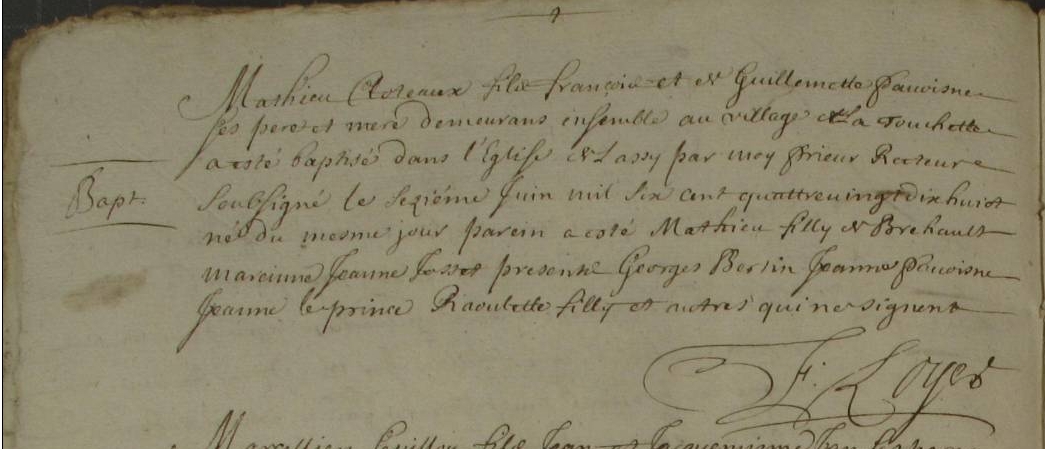 Mathieu Cloteaux fils francois et de Guillemette Pauoisne
ses pere et mere demeurans ensemble au village de la Touchette
a esté baptisé dans l'Eglise de Lassy par moy Prieur Recteur
soubsigné le seziéme Juin mil six cent quattreuingt dix huict
Bapt.
né du mesme jour parein a esté Mathieu filly de Brehault
mareinne Jeanne Josset presents Georges Bertin Jeanne Pauoisne
Jeanne le prince Raoulette filly et autres qui ne signent
F. Loyer
Jean et